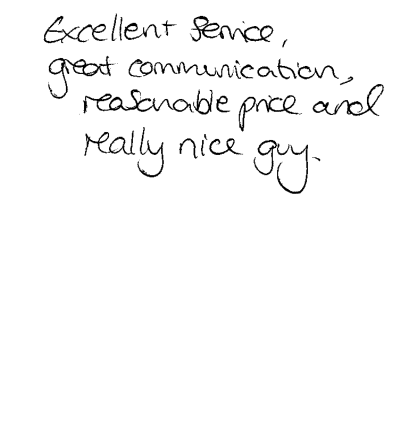 Excellent Service,
great communication,
reasonable price and
really nice guy.